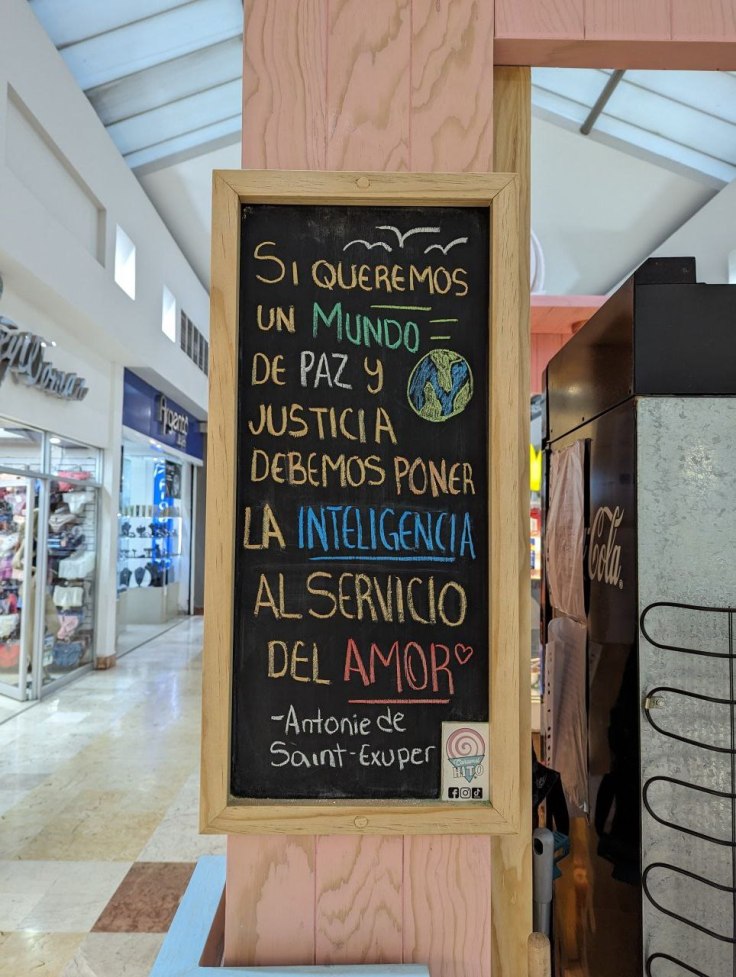 SI QUEREMOS
UN MUNDO
DE PAZ Y
JUSTICIA
DEBEMOS PONER
LA INTELIGENCIA
AL SERVICIO
DEL AMOR
-Antonie de
Saint-Exuper
HITO
Cola